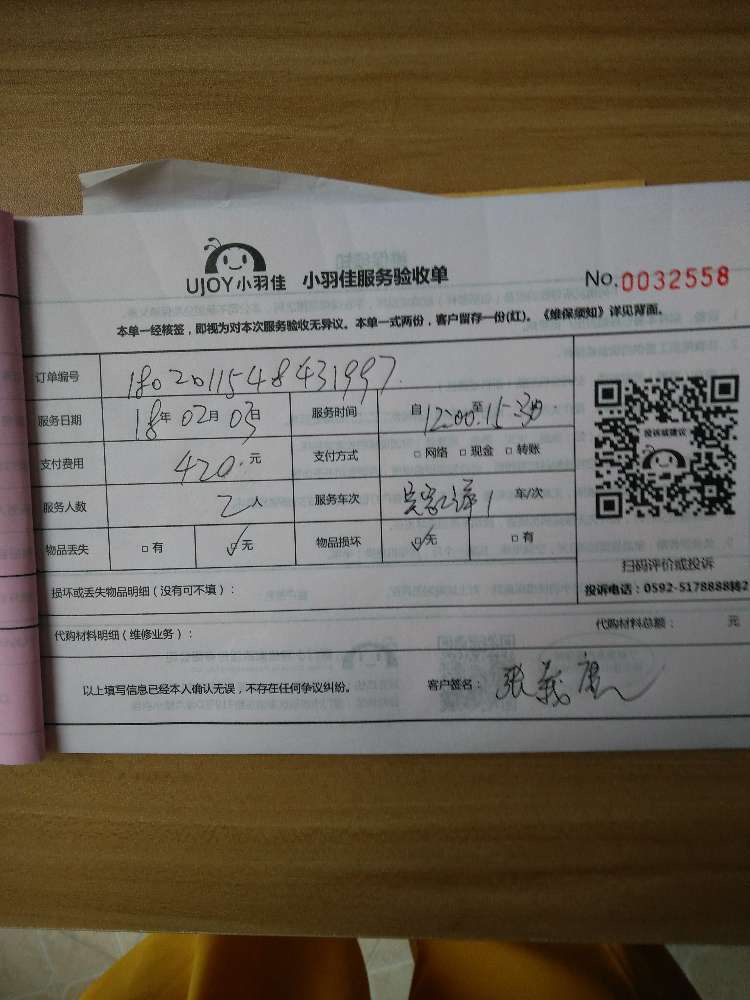 UJOY小羽佳 小羽佳服务验收单 No.0032558
本单一经核签，即视为对本次服务验收无异议。本单一式两份，客户留存一份(红)。《维保须知》详见背面。
订单编号 180201154843199７
服务日期 18年 02月 03日 服务时间 自12:00至15:30
支付费用 420.元 支付方式 □网络 □现金 □转账
服务人数 2人 服务车次 车/次
物品丢失 □有 ☑无 物品损坏 ☑无 □有
投诉或建议
扫码评价或投诉
投诉电话：0592-5178888转2
损坏或丢失物品明细（没有可不填）：
代购材料明细（维修业务）： 代购材料总额： 元
以上填写信息已经本人确认无误，不存在任何争议纠纷。 客户签名：张